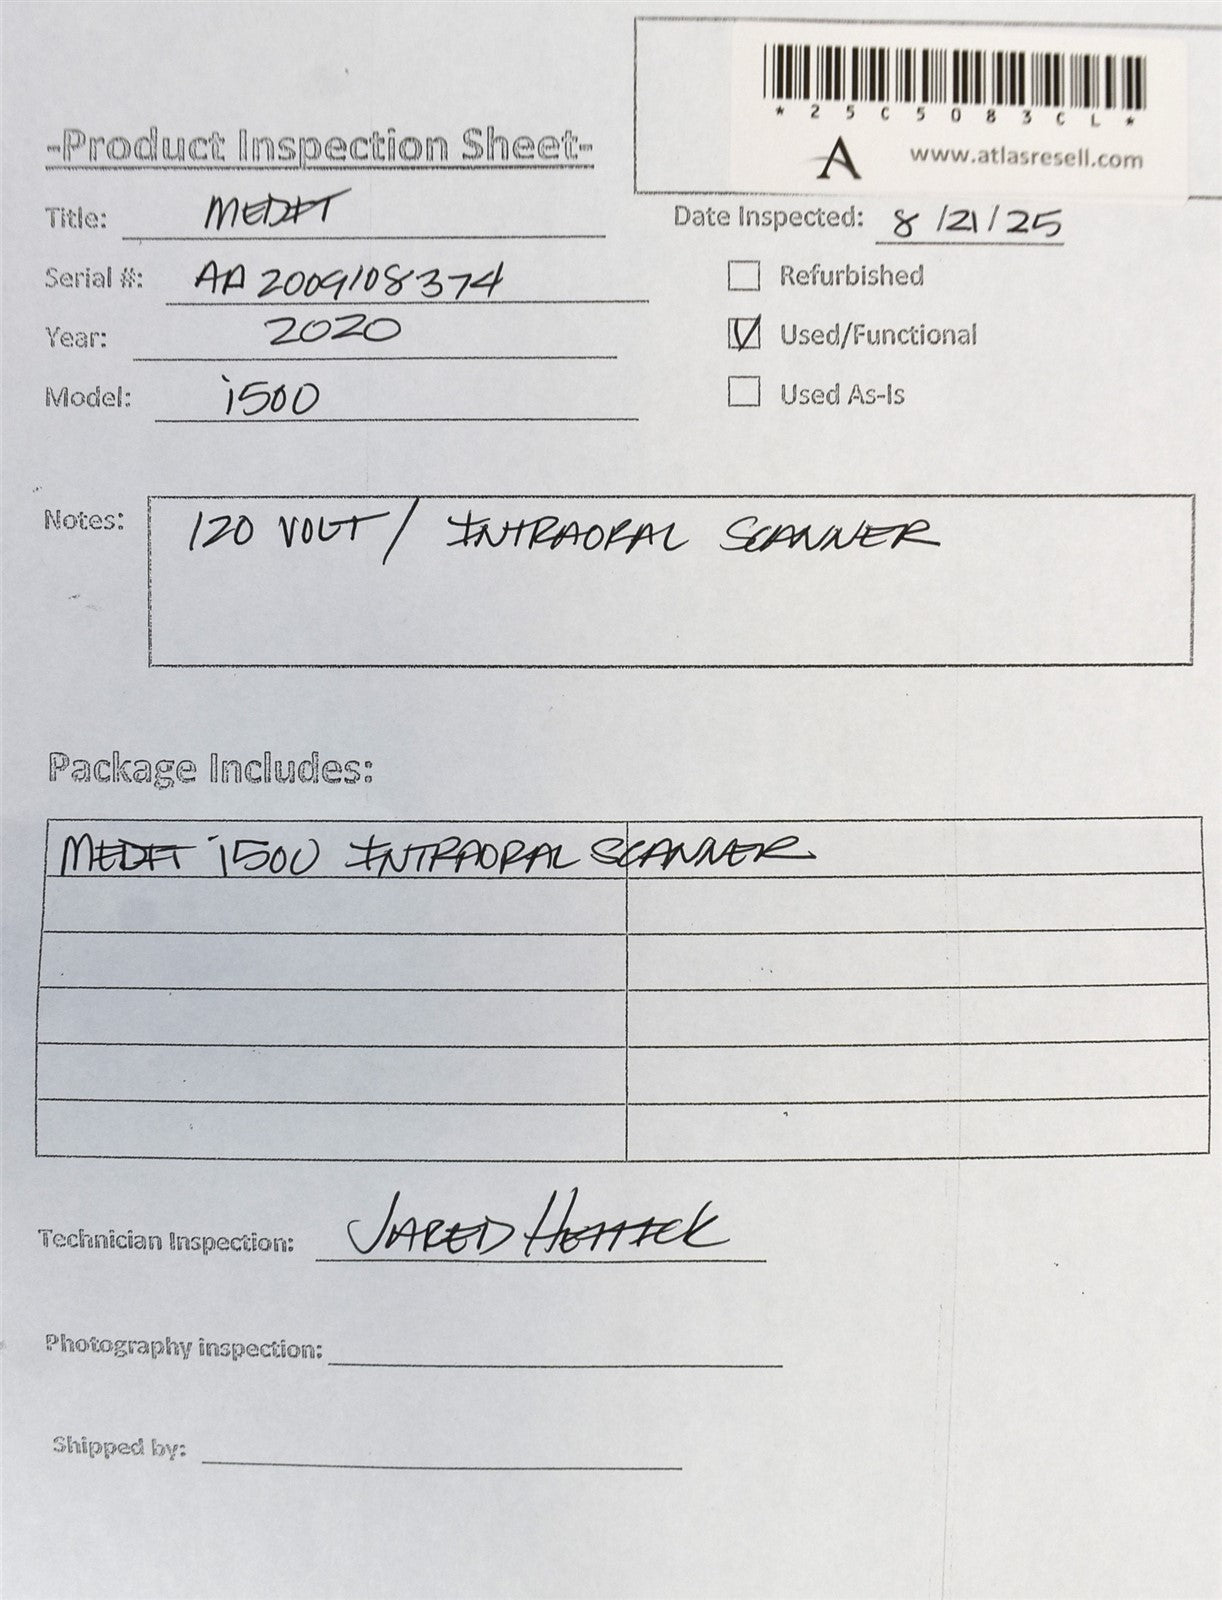 *25C5083CL*
A www.atlasresell.com
-Product Inspection Sheet-
Title: MEDIT
Date Inspected: 8/21/25
Serial #: AA2009108374
Refurbished
Year: 2020
Used/Functional
Model: i500
Used As-Is
Notes: 120 VOLT / INTRAORAL SCANNER
Package Includes:
MEDIT i500 INTRAORAL SCANNER
Technician Inspection: JARED
Photography inspection:
Shipped by: